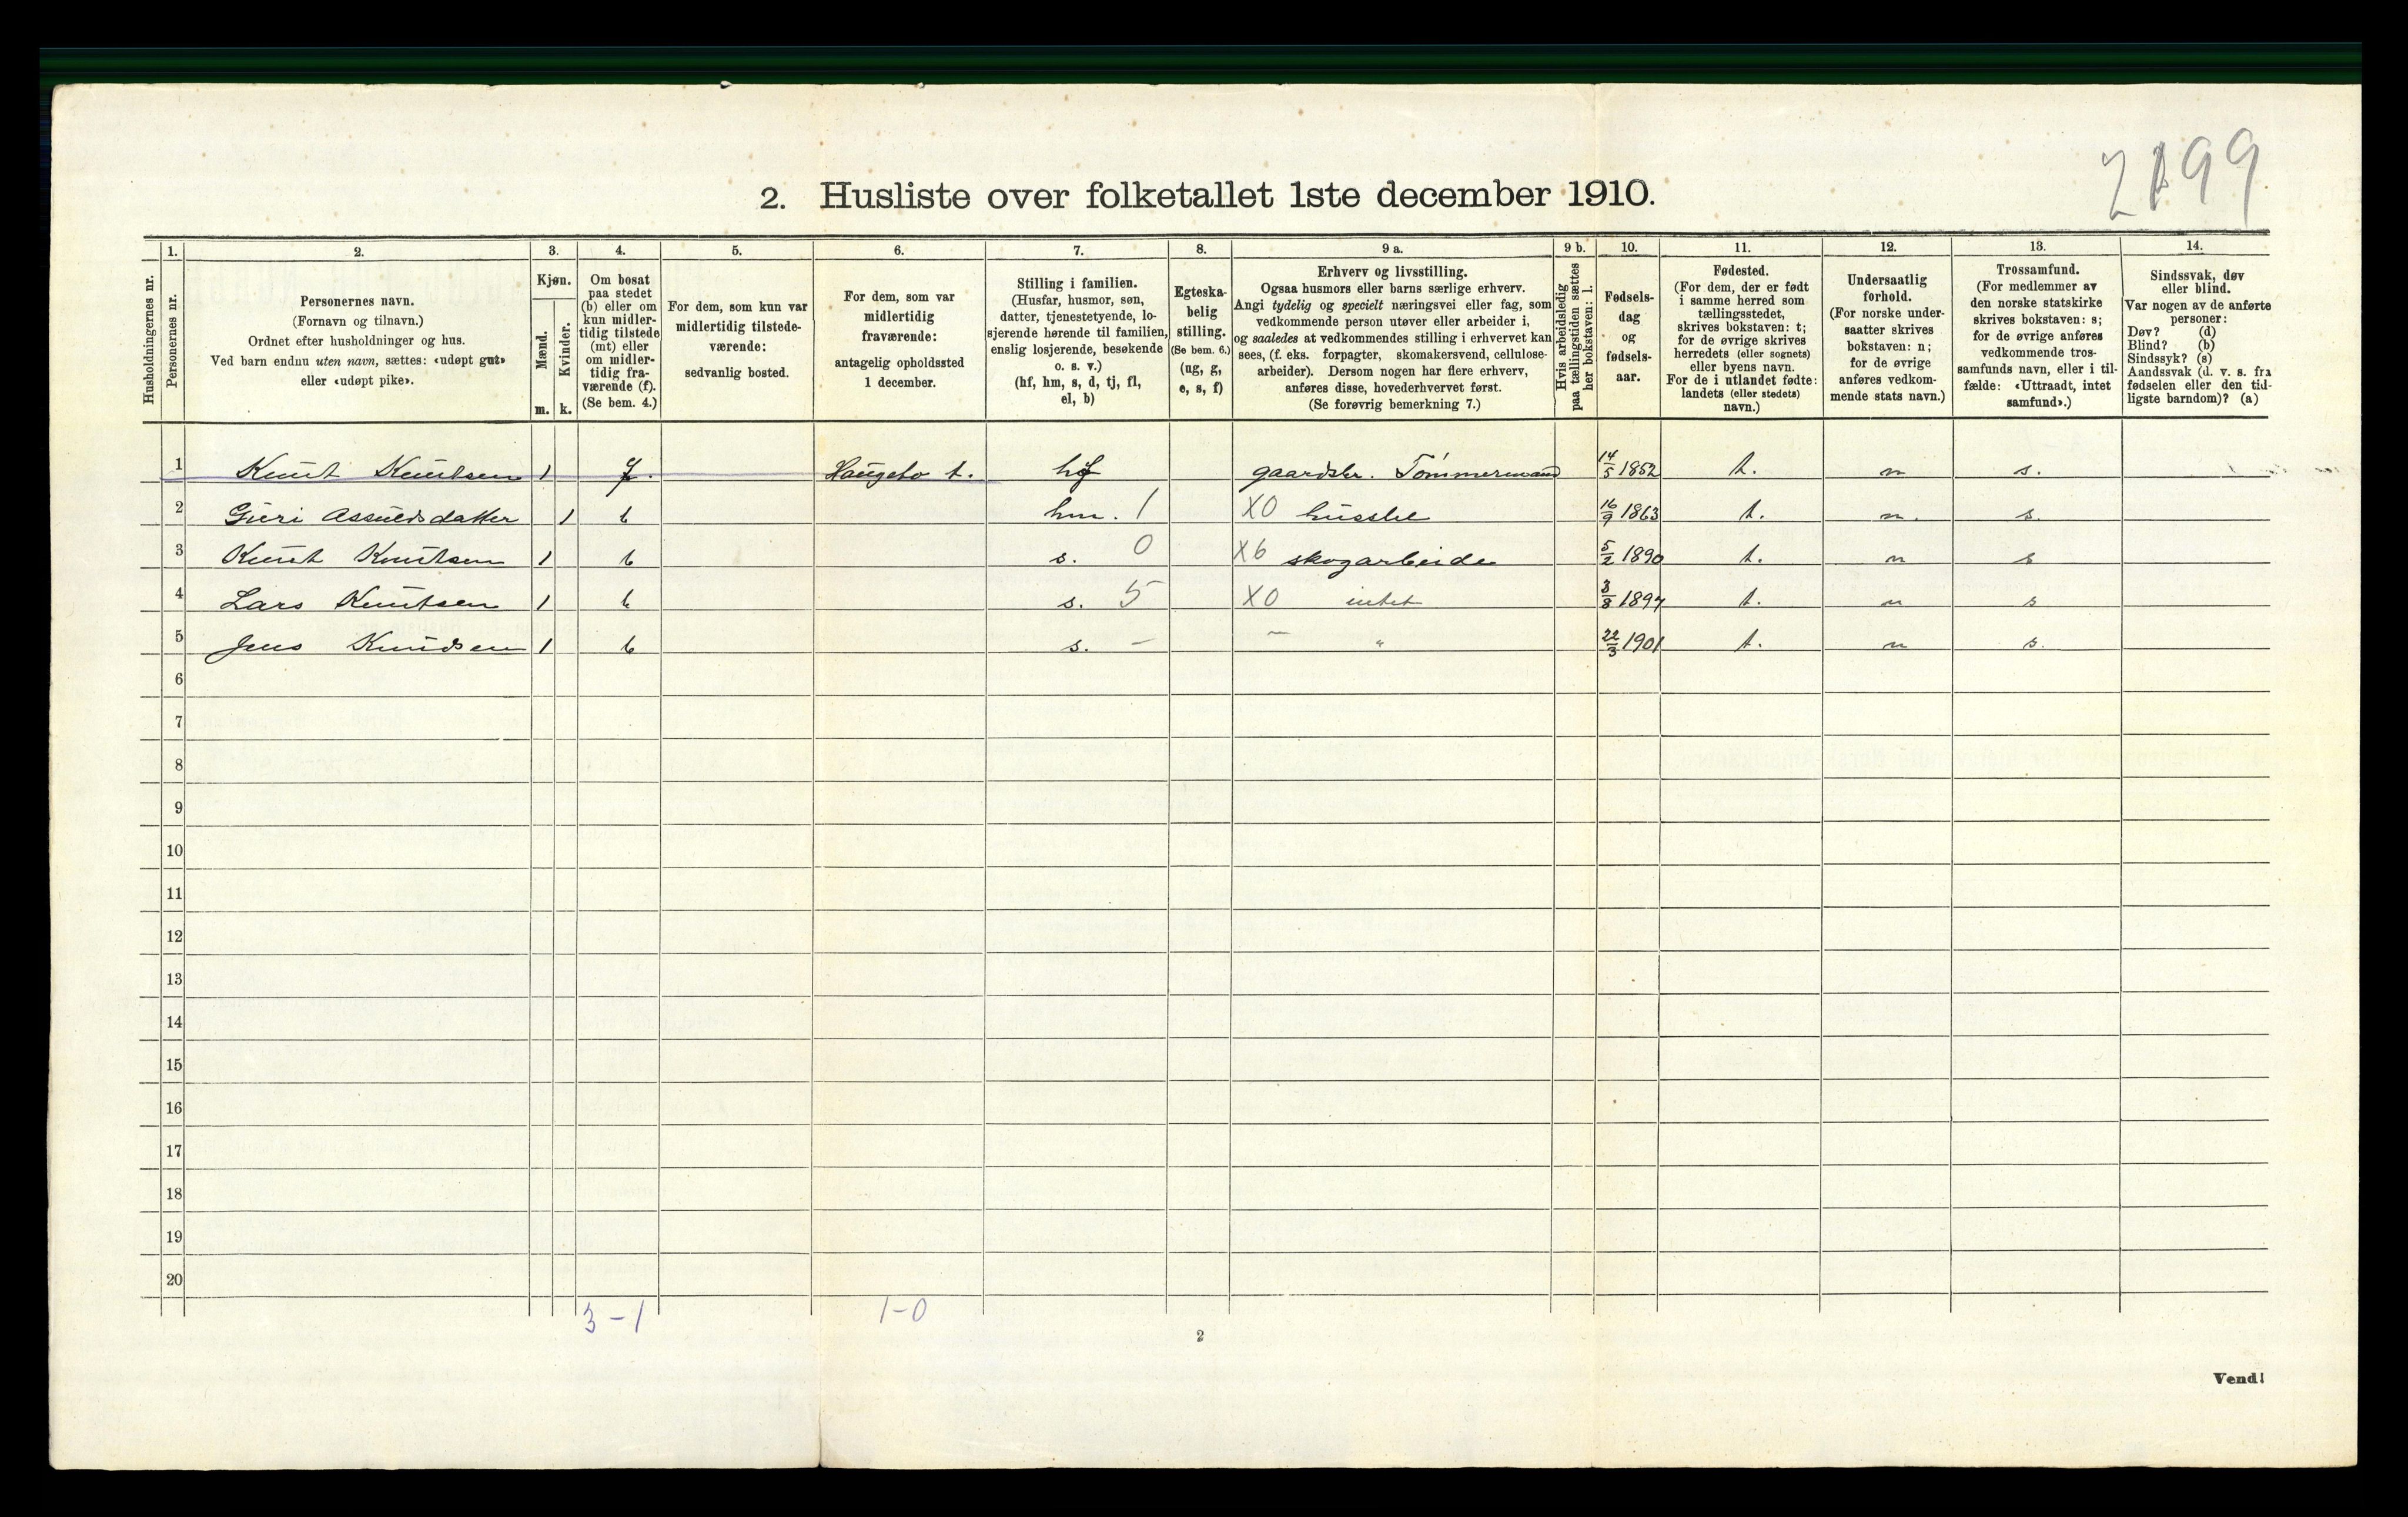 2199
2. Husliste over folketallet 1ste december 1910.
Husholdningernes nr.
1.
Personernes nr.
2.
Personernes navn.
(Fornavn og tilnavn.)
Ordnet efter husholdninger og hus.
Ved barn endnu uten navn, sættes: «udøpt gut»
eller «udøpt pike».
3.
Kjøn.
Mænd.
Kvinder.
m. k.
4.
Om bosat
paa stedet
(b) eller om
kun midler-
tidig tilstede
(mt) eller
om midler-
tidig fra-
værende (f).
(Se bem. 4.)
5.
For dem, som kun var
midlertidig tilstede-
værende:
sedvanlig bosted.
6.
For dem, som var
midlertidig
fraværende:
antagelig opholdssted
1 december.
7.
Stilling i familien.
(Husfar, husmor, søn,
datter, tjenestetyende, lo-
sjerende hørende til familien,
enslig losjerende, besøkende
o. s. v.)
(hf, hm, s, d, tj, fl,
el, b)
8.
Egteska-
belig
stilling.
(Se bem. 6.)
(ug, g,
e, s, f)
9 a.
Erhverv og livsstilling.
Ogsaa husmors eller barns særlige erhverv.
Angi tydelig og specielt næringsvei eller fag, som
vedkommende person utøver eller arbeider i,
og saaledes at vedkommendes stilling i erhvervet kan
sees, (f. eks. forpagter, skomakersvend, cellulose-
arbeider). Dersom nogen har flere erhverv,
anføres disse, hovederhvervet først.
(Se forøvrig bemerkning 7.)
9 b.
Hvis arbeidsledig
paa tællingstiden sættes
her bokstaven: l.
10.
Fødsels-
dag
og
fødsels-
aar.
11.
Fødested.
(For dem, der er født
i samme herred som
tællingsstedet,
skrives bokstaven: t;
for de øvrige skrives
herredets (eller sognets)
eller byens navn.
For de i utlandet fødte:
landets (eller stedets)
navn.)
12.
Undersaatlig
forhold.
(For norske under-
saatter skrives
bokstaven: n;
for de øvrige
anføres vedkom-
mende stats navn.)
13.
Trossamfund.
(For medlemmer av
den norske statskirke
skrives bokstaven: s;
for de øvrige anføres
vedkommende tros-
samfunds navn, eller i til-
fælde: «Uttraadt, intet
samfund».)
14.
Sindssvak, døv
eller blind.
Var nogen av de anførte
personer:
Døv? (d)
Blind? (b)
Sindssyk? (s)
Aandssvak (d. v. s. fra
fødselen eller den tid-
ligste barndom)? (a)
1 Knut Knutsen 1 f. Haugebo t. hf gaardbr. Tømmermand 14/5 1852 t. n s.
2 Guri Assuldsdatter 1 b hm. 1 X0 husstel 16/9 1863 t. n. s.
3 Knut Knutsen 1 b s. 0 X6 skogarbeide 5/2 1890 t. n s
4 Lars Knutsen 1 b s. 5 X0 intet 3/8 1897 t. n s
5 Jens Knudsen 1 b s. – – " 22/3 1901 t. n s.
6
7
8
9
10
11
12
13
14
15
16
17
18
19
20
3 – 1 1 – 0
2
Vend!